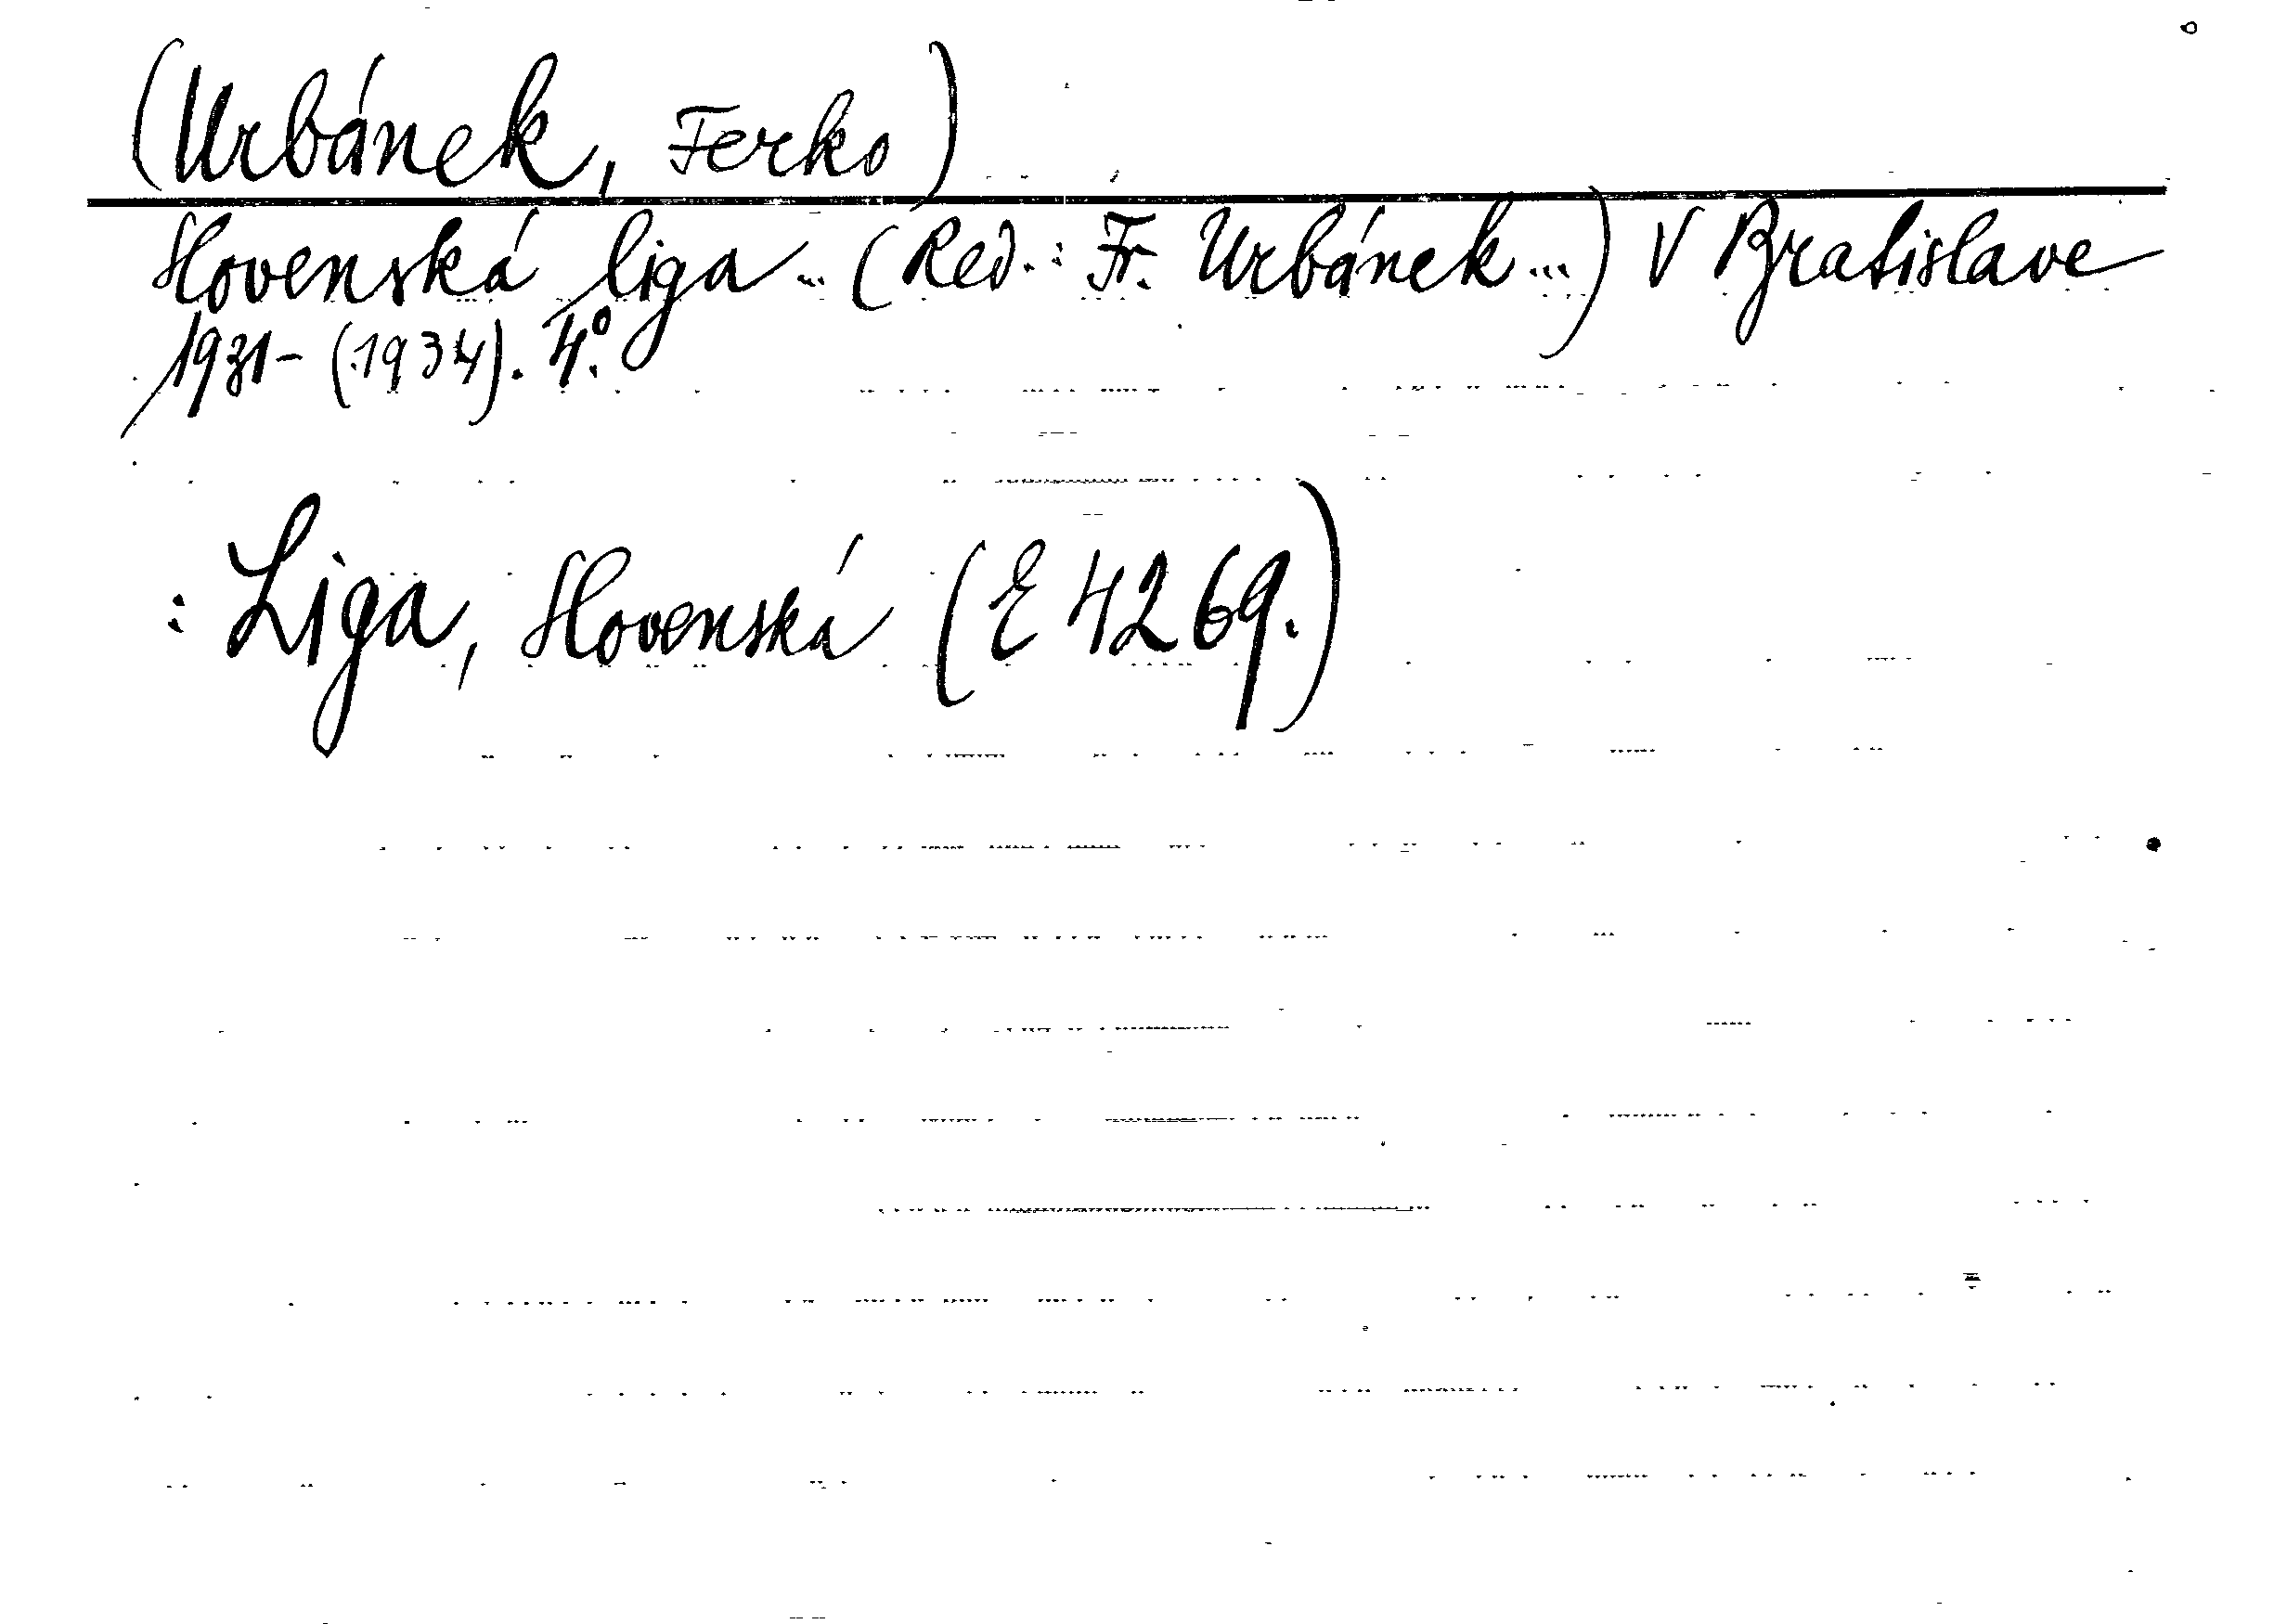 (Urbánek, Ferko)
Slovenská liga... (Red.: Fr. Urbánek...) V Bratislave
1931- (1934). 4°.
: Liga, Slovenská (E 4269.)